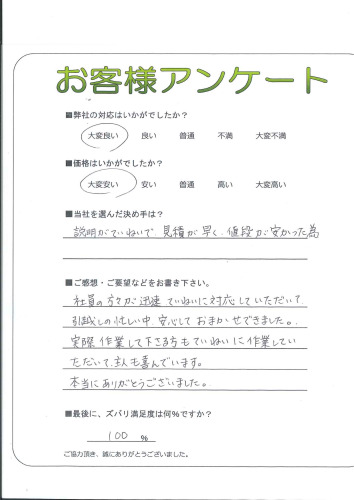 お客様アンケート
■弊社の対応はいかがでしたか？
大変良い 良い 普通 不満 大変不満
■価格はいかがでしたか？
大変安い 安い 普通 高い 大変高い
■当社を選んだ決め手は？
説明がていねいで、見積が早く、値段が安かった為
■ご感想・ご要望などをお書き下さい。
社員の方々が迅速、ていねいに対応していただいて
引越しの忙しい中、安心しておまかせできました。
実際、作業して下さる方もていねいに作業してい
ただいて、主人も喜んでいます。
本当にありがとうございました。
■最後に、ズバリ満足度は何%ですか？
100 %
ご協力頂き、誠にありがとうございました。